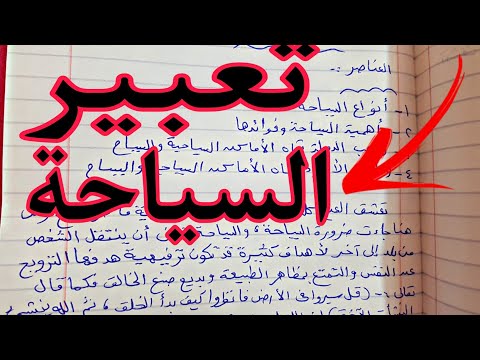 تعبير
السياحة
العناصر :-
١- أنواع السياحة
٢- أهمية السياحة وفوائدها
تجاه الأماكن السياحية والسياح
٤- تجاه الأماكن السياحية والسياح
هنا جاءت ضرورة السياحة ، والسياحة أن ينتقل الشخص
من بلد إلى آخر لأهداف كثيرة قد تكون ترفيهية هدفها الترويح
عن النفس والتمتع بمظاهر الطبيعة وبديع صنع الخالق فكما قال
تعالى :- (قل سيروا في الأرض فانظروا كيف بدأ الخلق ، ثم الله ينشئ